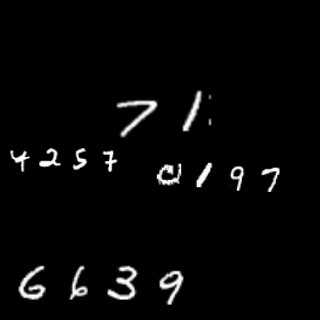 71
4257
197
6639